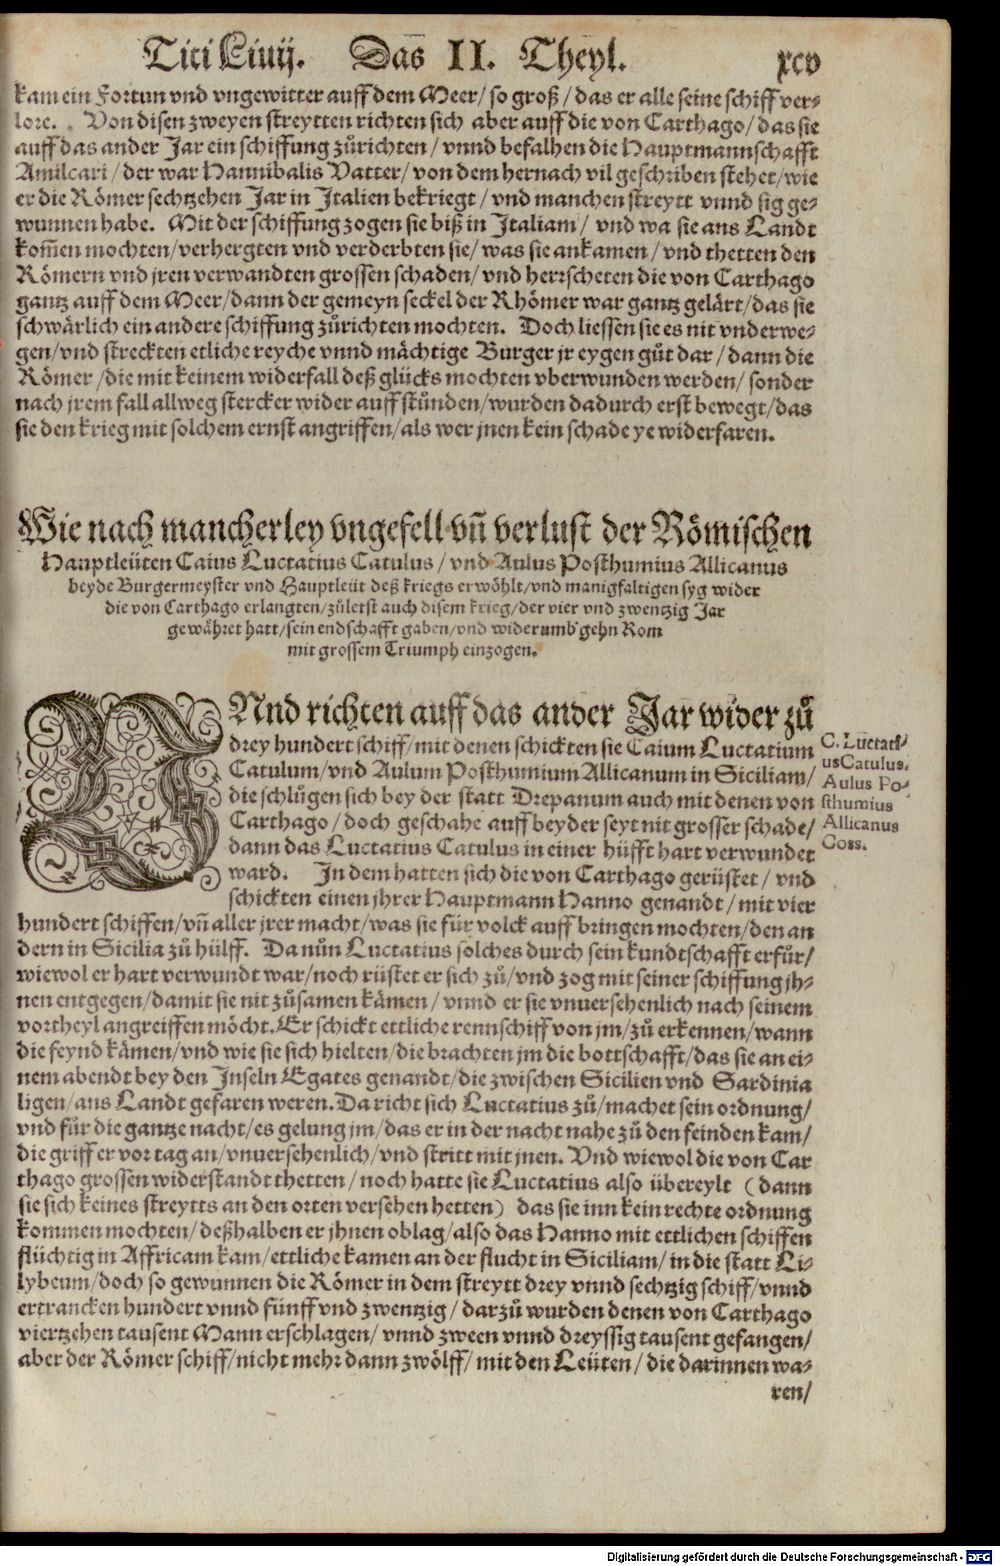 Titi Liuij. Das II. Theyl. xcv
kam ein Fortun vnd vngewitter auff dem Meer/ so groß/ das er alle seine schiff ver-
lore. Von disen zweyen streytten richten sich aber auff die von Carthago/ das sie
auff das ander Jar ein schiffung zůrichten/ vnnd befalhen die Hauptmannschafft
Amilcari/ der war Hannibalis Vatter/ von dem hernach vil geschriben stehet/ wie
er die Römer sechtzehen Jar in Italien bekriegt/ vnd manchen streytt vnnd sig ge-
wunnen habe. Mit der schiffung zogen sie biß in Italiam/ vnd wa sie ans Landt
kom̃en mochten/ verhergten vnd verderbten sie/ was sie ankamen/ vnd thetten den
Römern vnd jren verwandten grossen schaden/ vnd herrscheten die von Carthago
gantz auff dem Meer/ dann der gemeyn seckel der Rhömer war gantz gelärt/ das sie
schwärlich ein andere schiffung zůrichten mochten. Doch liessen sie es nit vnderwe-
gen/ vnd streckten etliche reyche vnnd mächtige Burger jr eygen gůt dar/ dann die
Römer/ die mit keinem widerfall deß glücks mochten vberwunden werden/ sonder
nach jrem fall allweg stercker wider auff stůnden/ wurden dadurch erst bewegt/ das
sie den krieg mit solchem ernst angriffen/ als wer jnen kein schade ye widerfaren.
Wie nach mancherley vngefell vñ verlust der Römischen
Hauptleüten Caius Luctatius Catulus/ vnd Aulus Posthumius Allicanus
beyde Burgermeyster vnd Hauptleüt deß kriegs erwöhlt/ vnd manigfaltigen syg wider
die von Carthago erlangten/ zůletst auch disem krieg/ der vier vnd zwentzig Jar
gewähret hatt/ sein endschafft gaben/ vnd widerumb gehn Rom
mit grossem Triumph einzogen.
VNnd richten auff das ander Jar wider zů
drey hundert schiff/ mit denen schickten sie Caium Luctatium
Catulum/ vnd Aulum Posthumium Allicanum in Siciliam/
die schlůgen sich bey der statt Drepanum auch mit denen von
Carthago/ doch geschahe auff beyder seyt nit grosser schade/
dann das Luctatius Catulus in einer hüfft hart verwundet
ward. In dem hatten sich die von Carthago gerüstet/ vnd
schickten einen jhrer Hauptmann Hanno genandt/ mit vier
C. Luctati-
us Catulus.
Aulus Po-
sthumius
Allicanus
Coss.
hundert schiffen/ vñ aller jrer macht/ was sie für volck auff bringen mochten/ den an
dern in Sicilia zů hülff. Da nůn Luctatius solches durch sein kundtschafft erfůr/
wiewol er hart verwundt war/ noch rüstet er sich zů/ vnd zog mit seiner schiffung jh-
nen entgegen/ damit sie nit zůsamen kämen/ vnnd er sie vnuersehenlich nach seinem
vortheyl angreiffen möcht. Er schickt ettliche rennschiff von jm/ zů erkennen/ wann
die feynd kämen/ vnd wie sie sich hielten/ die brachten jm die bottschafft/ das sie an ei-
nem abendt bey den Inseln Egates genandt/ die zwischen Sicilien vnd Sardinia
ligen/ ans Landt gefaren weren. Da richt sich Luctatius zů/ machet sein ordnung/
vnd für die gantze nacht/ es gelung jm/ das er in der nacht nahe zů den feinden kam/
die griff er vor tag an/ vnuersehenlich/ vnd stritt mit jnen. Vnd wiewol die von Car
thago grossen widerstandt thetten/ noch hatte sie Luctatius also übereylt (dann
sie sich keines streytts an den orten versehen hetten) das sie inn kein rechte ordnung
kommen mochten/ deßhalben er jhnen oblag/ also das Hanno mit ettlichen schiffen
flüchtig in Affricam kam/ ettliche kamen an der flucht in Siciliam/ in die statt Li-
lybeum/ doch so gewunnen die Römer in dem streytt drey vnnd sechtzig schiff/ vnnd
ertrancken hundert vnnd fünff vnd zwentzig/ darzů wurden denen von Carthago
viertzehen tausent Mann erschlagen/ vnnd zween vnnd dreyssig tausent gefangen/
aber der Römer schiff/ nicht mehr dann zwölff/ mit den Leüten/ die darinnen wa-
ren/
Digitalisierung gefördert durch die Deutsche Forschungsgemeinschaft - DFG